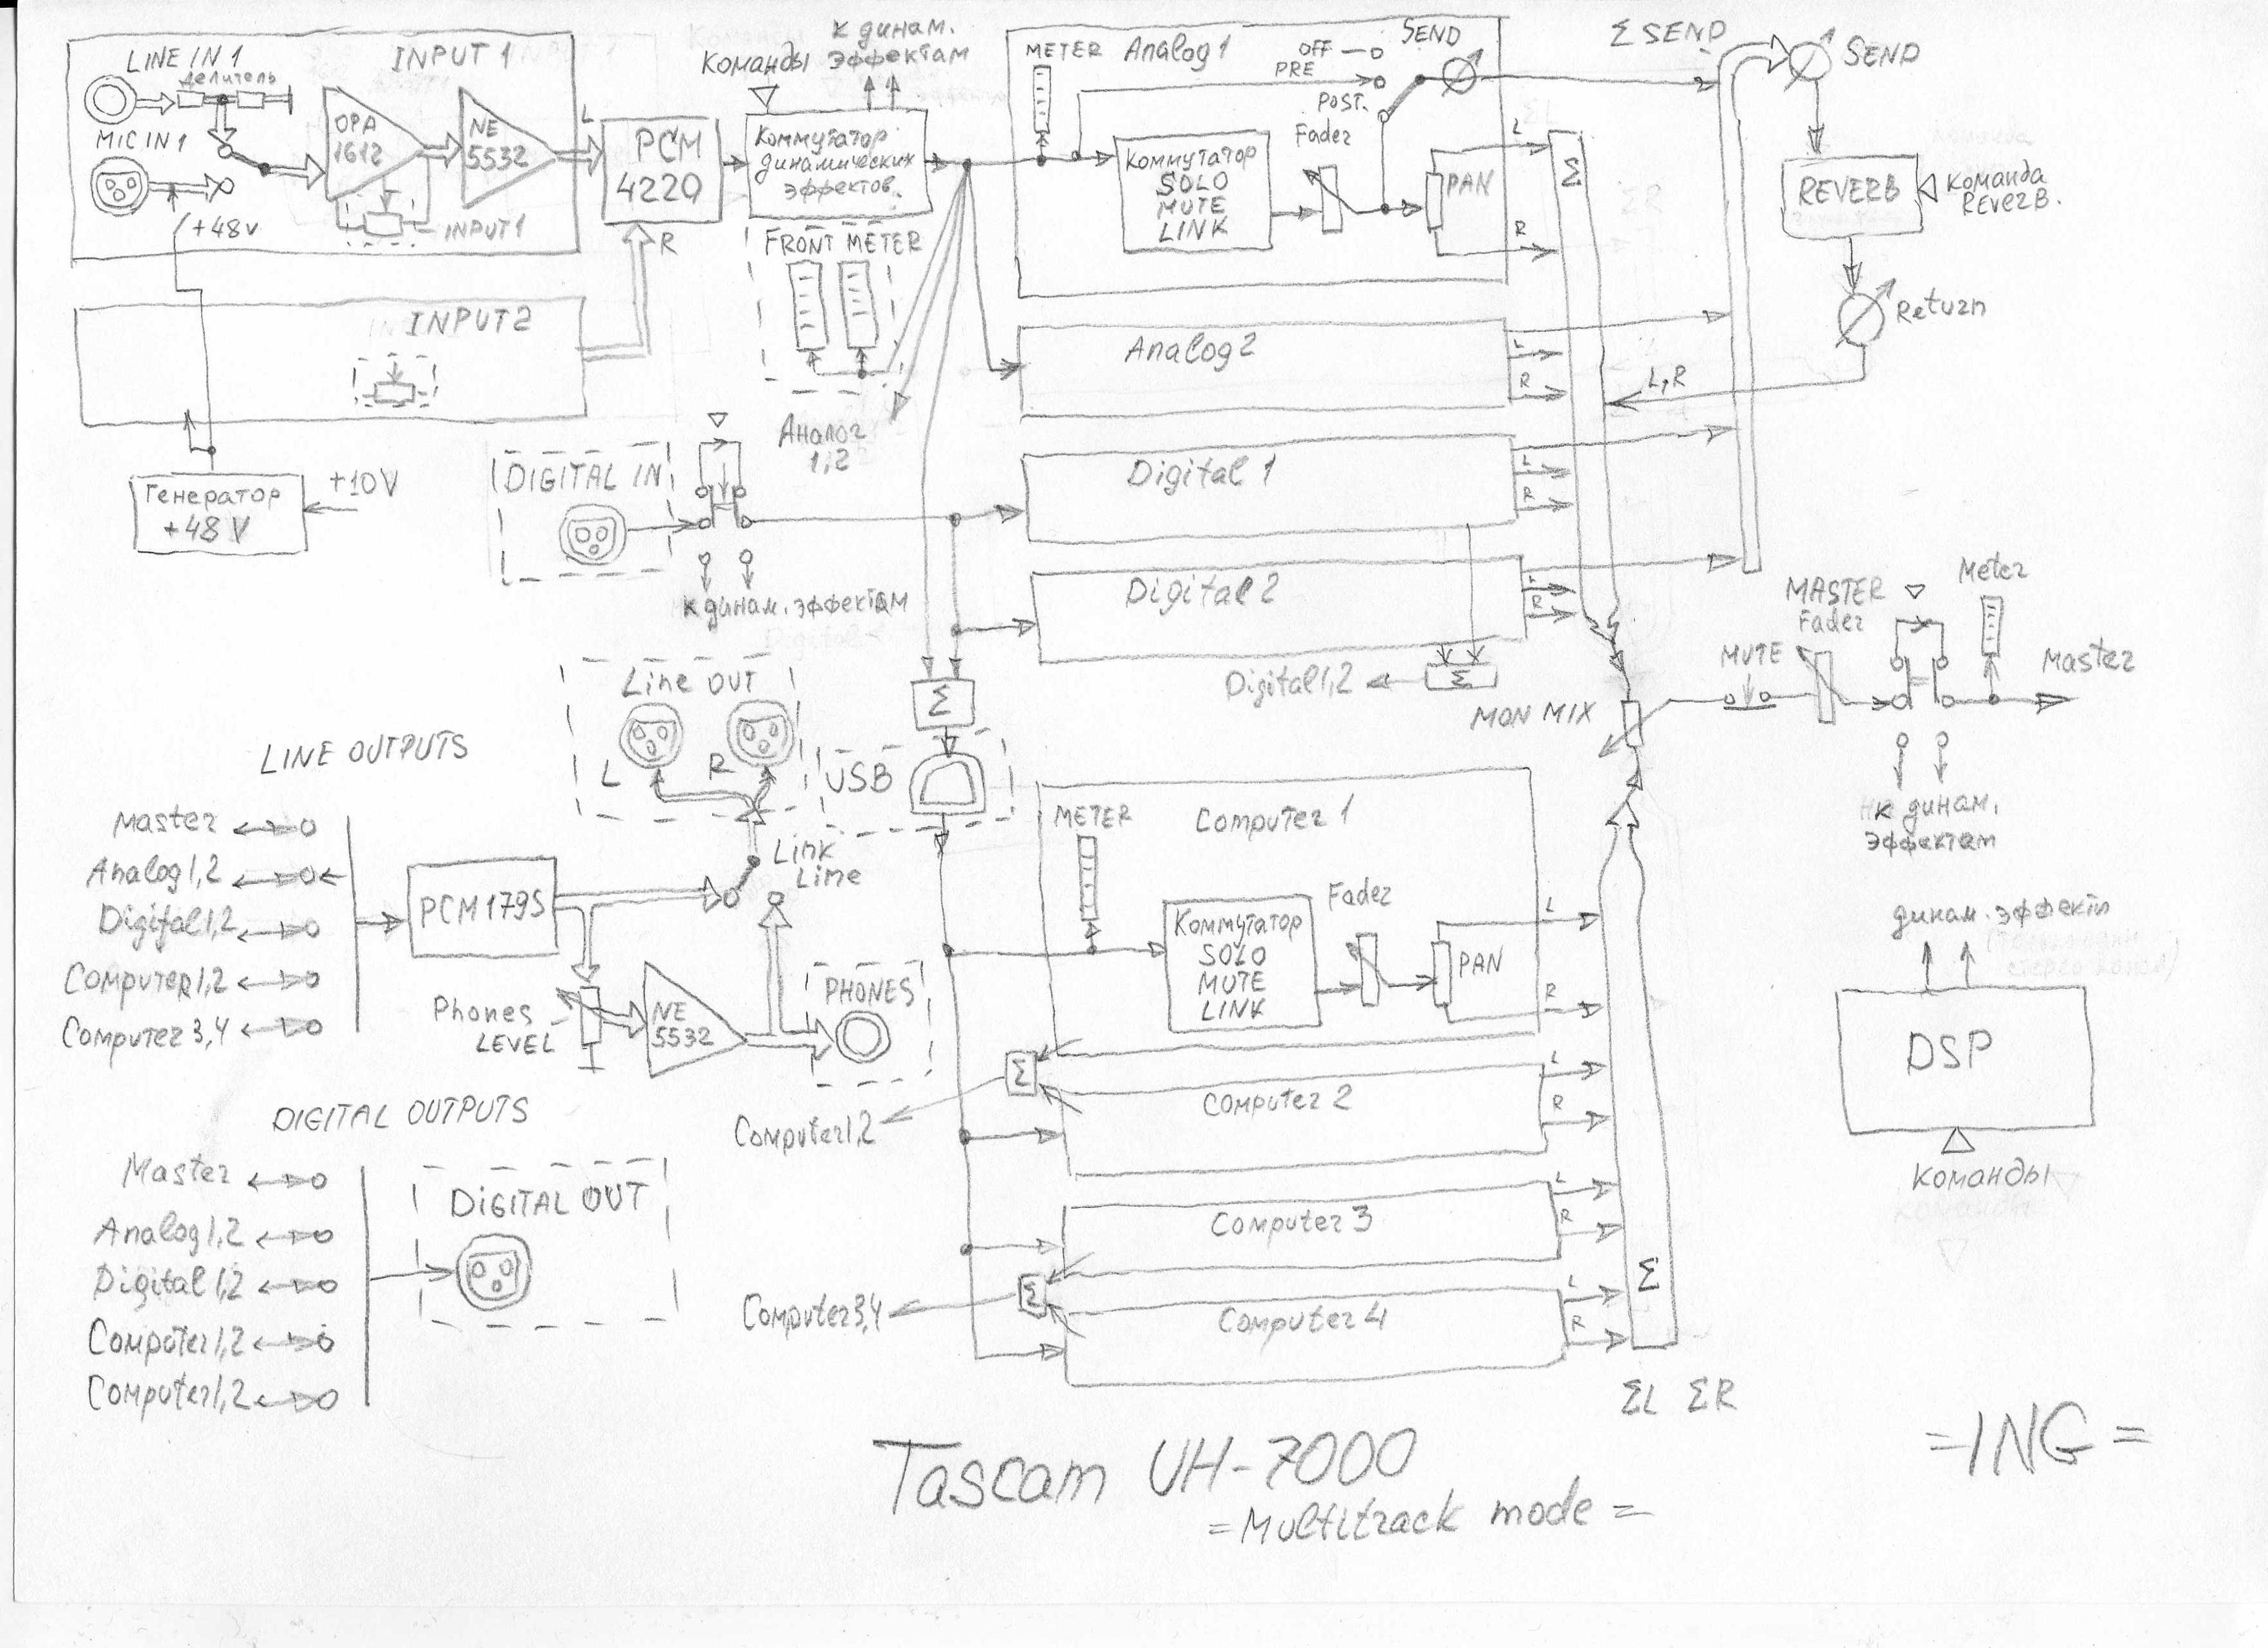 LINE IN 1
делитель
INPUT 1
MIC IN 1
+48v
OPA
1612
NE
5532
INPUT1
L
PCM
4220
R
INPUT2
Генератор
+48 V
+10V
Команды
к динам.
эффектам
Коммутатор
динамических
эффектов.
FRONT METER
Аналог
1,2
METER
Analog 1
OFF
PRE
POST.
SEND
Коммутатор
SOLO
MUTE
LINK
Fader
PAN
L
R
Σ
Σ SEND
SEND
REVERB
Команда
REVERB.
Return
L,R
Analog 2
L
R
DIGITAL IN
к динам. эффектам
Digital 1
L
R
Digital 2
L
R
Σ
Digital 1,2
Σ
USB
MON MIX
MUTE
MASTER
Fader
Meter
Master
к динам.
эффектам
Line OUT
L
R
Link
Line
LINE OUTPUTS
Master
Analog 1,2
Digital 1,2
Computer 1,2
Computer 3,4
PCM1795
Phones
LEVEL
NE
5532
PHONES
METER
Computer 1
Коммутатор
SOLO
MUTE
LINK
Fader
PAN
L
R
Σ
Computer1,2
Computer 2
L
R
Computer 3
L
R
Σ
Computer3,4
Computer 4
L
R
Σ
ΣL ΣR
динам. эффекты
DSP
Команды
DIGITAL OUTPUTS
Master
Analog 1,2
Digital 1,2
Computer 1,2
Computer 1,2
DIGITAL OUT
Tascam UH-7000
= Multitrack mode =
= ING =